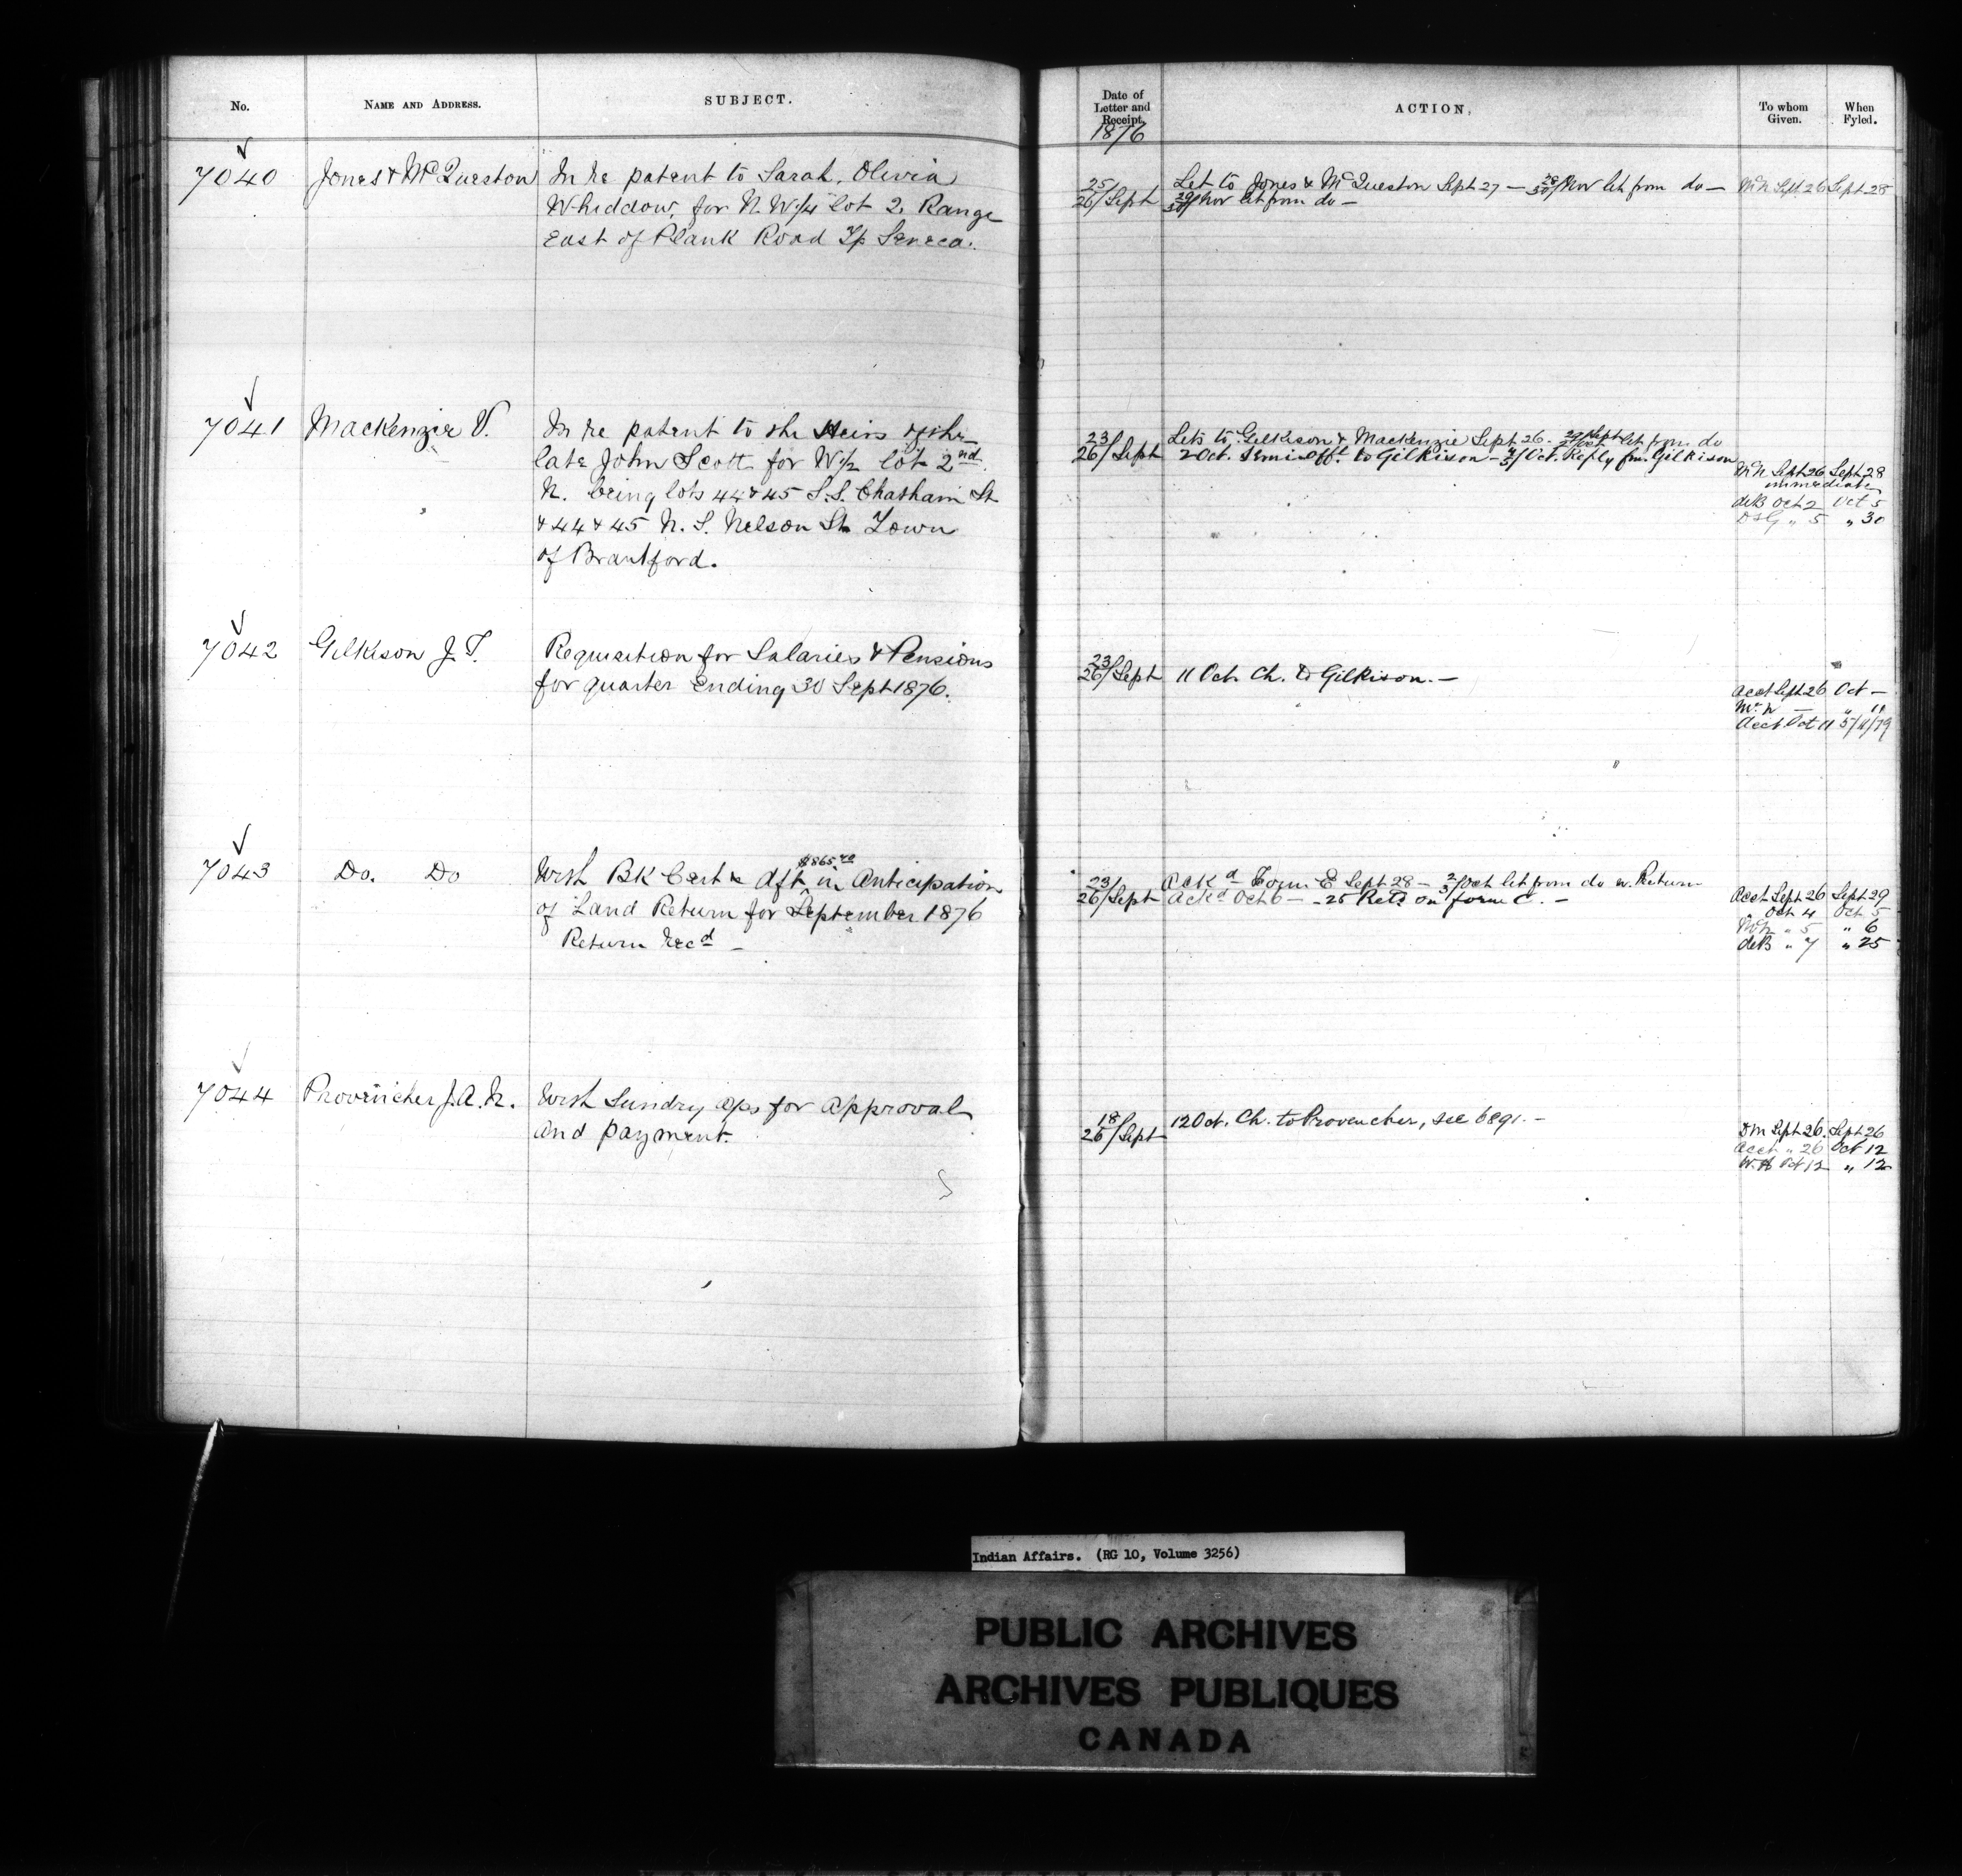 No.
NAME AND ADDRESS.
SUBJECT.
Date of
Letter and
Receipt.
1876
ACTION.
To whom
Given.
When
Fyled.
7040
Jones & McQueston
In re patent to Sarah, Olivia
Whiddow, for N.W¼ lot 2. Range
East of Plank Road Tp Seneca.
25
26/Sept
Let to Jones & McQueston Sept 27 — 28/30/Nov let from do —
29/30/Nov let from do —
McN Sept 26
Sept 28
7041
Mackenzie V.
In re patent to the Heirs of the
late John Scott for W½ lot 2nd
N. being lots 44 & 45 S.S. Chatham St
& 44 & 45 N.S. Nelson St Town
of Brantford.
23
26/Sept
Lets to Gilkison & Mackenzie Sept 26. 29/Sept 2/Oct let from do
2 Oct. Semi off. to Gilkison — 4/5/Oct. Reply fm. Gilkison
McN Sept 26
Sept 28
immediate
deB Oct 2
Oct 5
DSG " 5
" 30
7042
Gilkison J.T.
Requisition for Salaries & Pensions
for quarter ending 30 Sept 1876.
23
26/Sept
11 Oct. Ch. to Gilkison. —
Acct Sept 26
Oct —
Mr N —
" 11
Acct Oct 11
5/11/79
7043
Do. Do
With BK Cert & dft $865.40 in Anticipation
of Land Return for September 1876
Return Recd —
23/
26/Sept
Ackd Form E Sept 28 — 2/3/Oct let from do w. Return
Ackd Oct 6 — - 25 Retd on form C. —
Acct Sept 26
Sept 29
" Oct 4
Oct 5
McN " 5
" 6
deB " 7
" 25
7044
Provencher J.A.N.
With Sundry a/cs for approval
and payment.
18/
26/Sept
12 Oct. Ch. to Provencher, see 6891. —
DM Sept 26.
Sept 26
Acct " 26
Oct 12
W.A Oct 12
" 12
Indian Affairs. (RG 10, Volume 3256)
PUBLIC ARCHIVES
ARCHIVES PUBLIQUES
CANADA